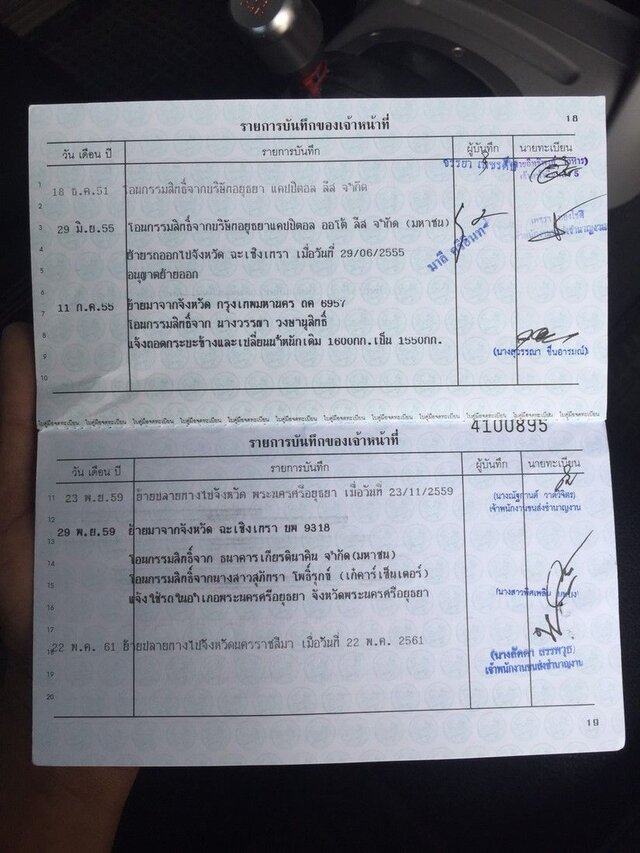 18
รายการบันทึกของเจ้าหน้าที่
วัน เดือน ปี รายการบันทึก ผู้บันทึก นายทะเบียน
1
2 18 ธ.ค.51 โอนกรรมสิทธิ์จากบริษัทอยุธยา แคปปิตอล ลีส จำกัด
3 29 มิ.ย.55 โอนกรรมสิทธิ์จากบริษัทอยุธยาแคปปิตอล ออโต้ ลีส จำกัด (มหาชน)
4 ย้ายรถออกไปจังหวัด ฉะเชิงเทรา เมื่อวันที่ 29/06/2555
5 อนุญาตย้ายออก
6
7 11 ก.ค.55 ย้ายมาจากจังหวัด กรุงเทพมหานคร ถค 6957
โอนกรรมสิทธิ์จาก นางวรรธา วงษานุสิทธิ์
8 แจ้งถอดกระยะข้างและเปลี่ยนน้ำหนักเดิม 1600กก.เป็น 1550กก.
9 (นางสุวรรณา ชื่นอารมณ์)
10
ใบคู่มือจดทะเบียน ใบคู่มือจดทะเบียน ใบคู่มือจดทะเบียน ใบคู่มือจดทะเบียน ใบคู่มือจดทะเบียน ใบคู่มือจดทะเบียน
4100895
รายการบันทึกของเจ้าหน้าที่
วัน เดือน ปี รายการบันทึก ผู้บันทึก นายทะเบียน
11 23 พ.ย.59 ย้ายปลายทางไปจังหวัด พระนครศรีอยุธยา เมื่อวันที่ 23/11/2559
เจ้าพนักงานขนส่งชำนาญงาน
12
13 29 พ.ย.59 ย้ายมาจากจังหวัด ฉะเชิงเทรา บพ 9318
14 โอนกรรมสิทธิ์จาก ธนาคารเกียรตินาคิน จำกัด(มหาชน)
15 โอนกรรมสิทธิ์จากนางสาวสุภัทรา โพธิ์รุกข์ (เก๋คาร์เซ็นเตอร์)
16 แจ้งใช้รถในอำเภอพระนครศรีอยุธยา จังหวัดพระนครศรีอยุธยา
17
18 22 พ.ค. 61 ย้ายปลายทางไปจังหวัดนครราชสีมา เมื่อวันที่ 22 พ.ค. 2561
(นางลัดดา สรรพวุธ)
เจ้าพนักงานขนส่งชำนาญงาน
20
19